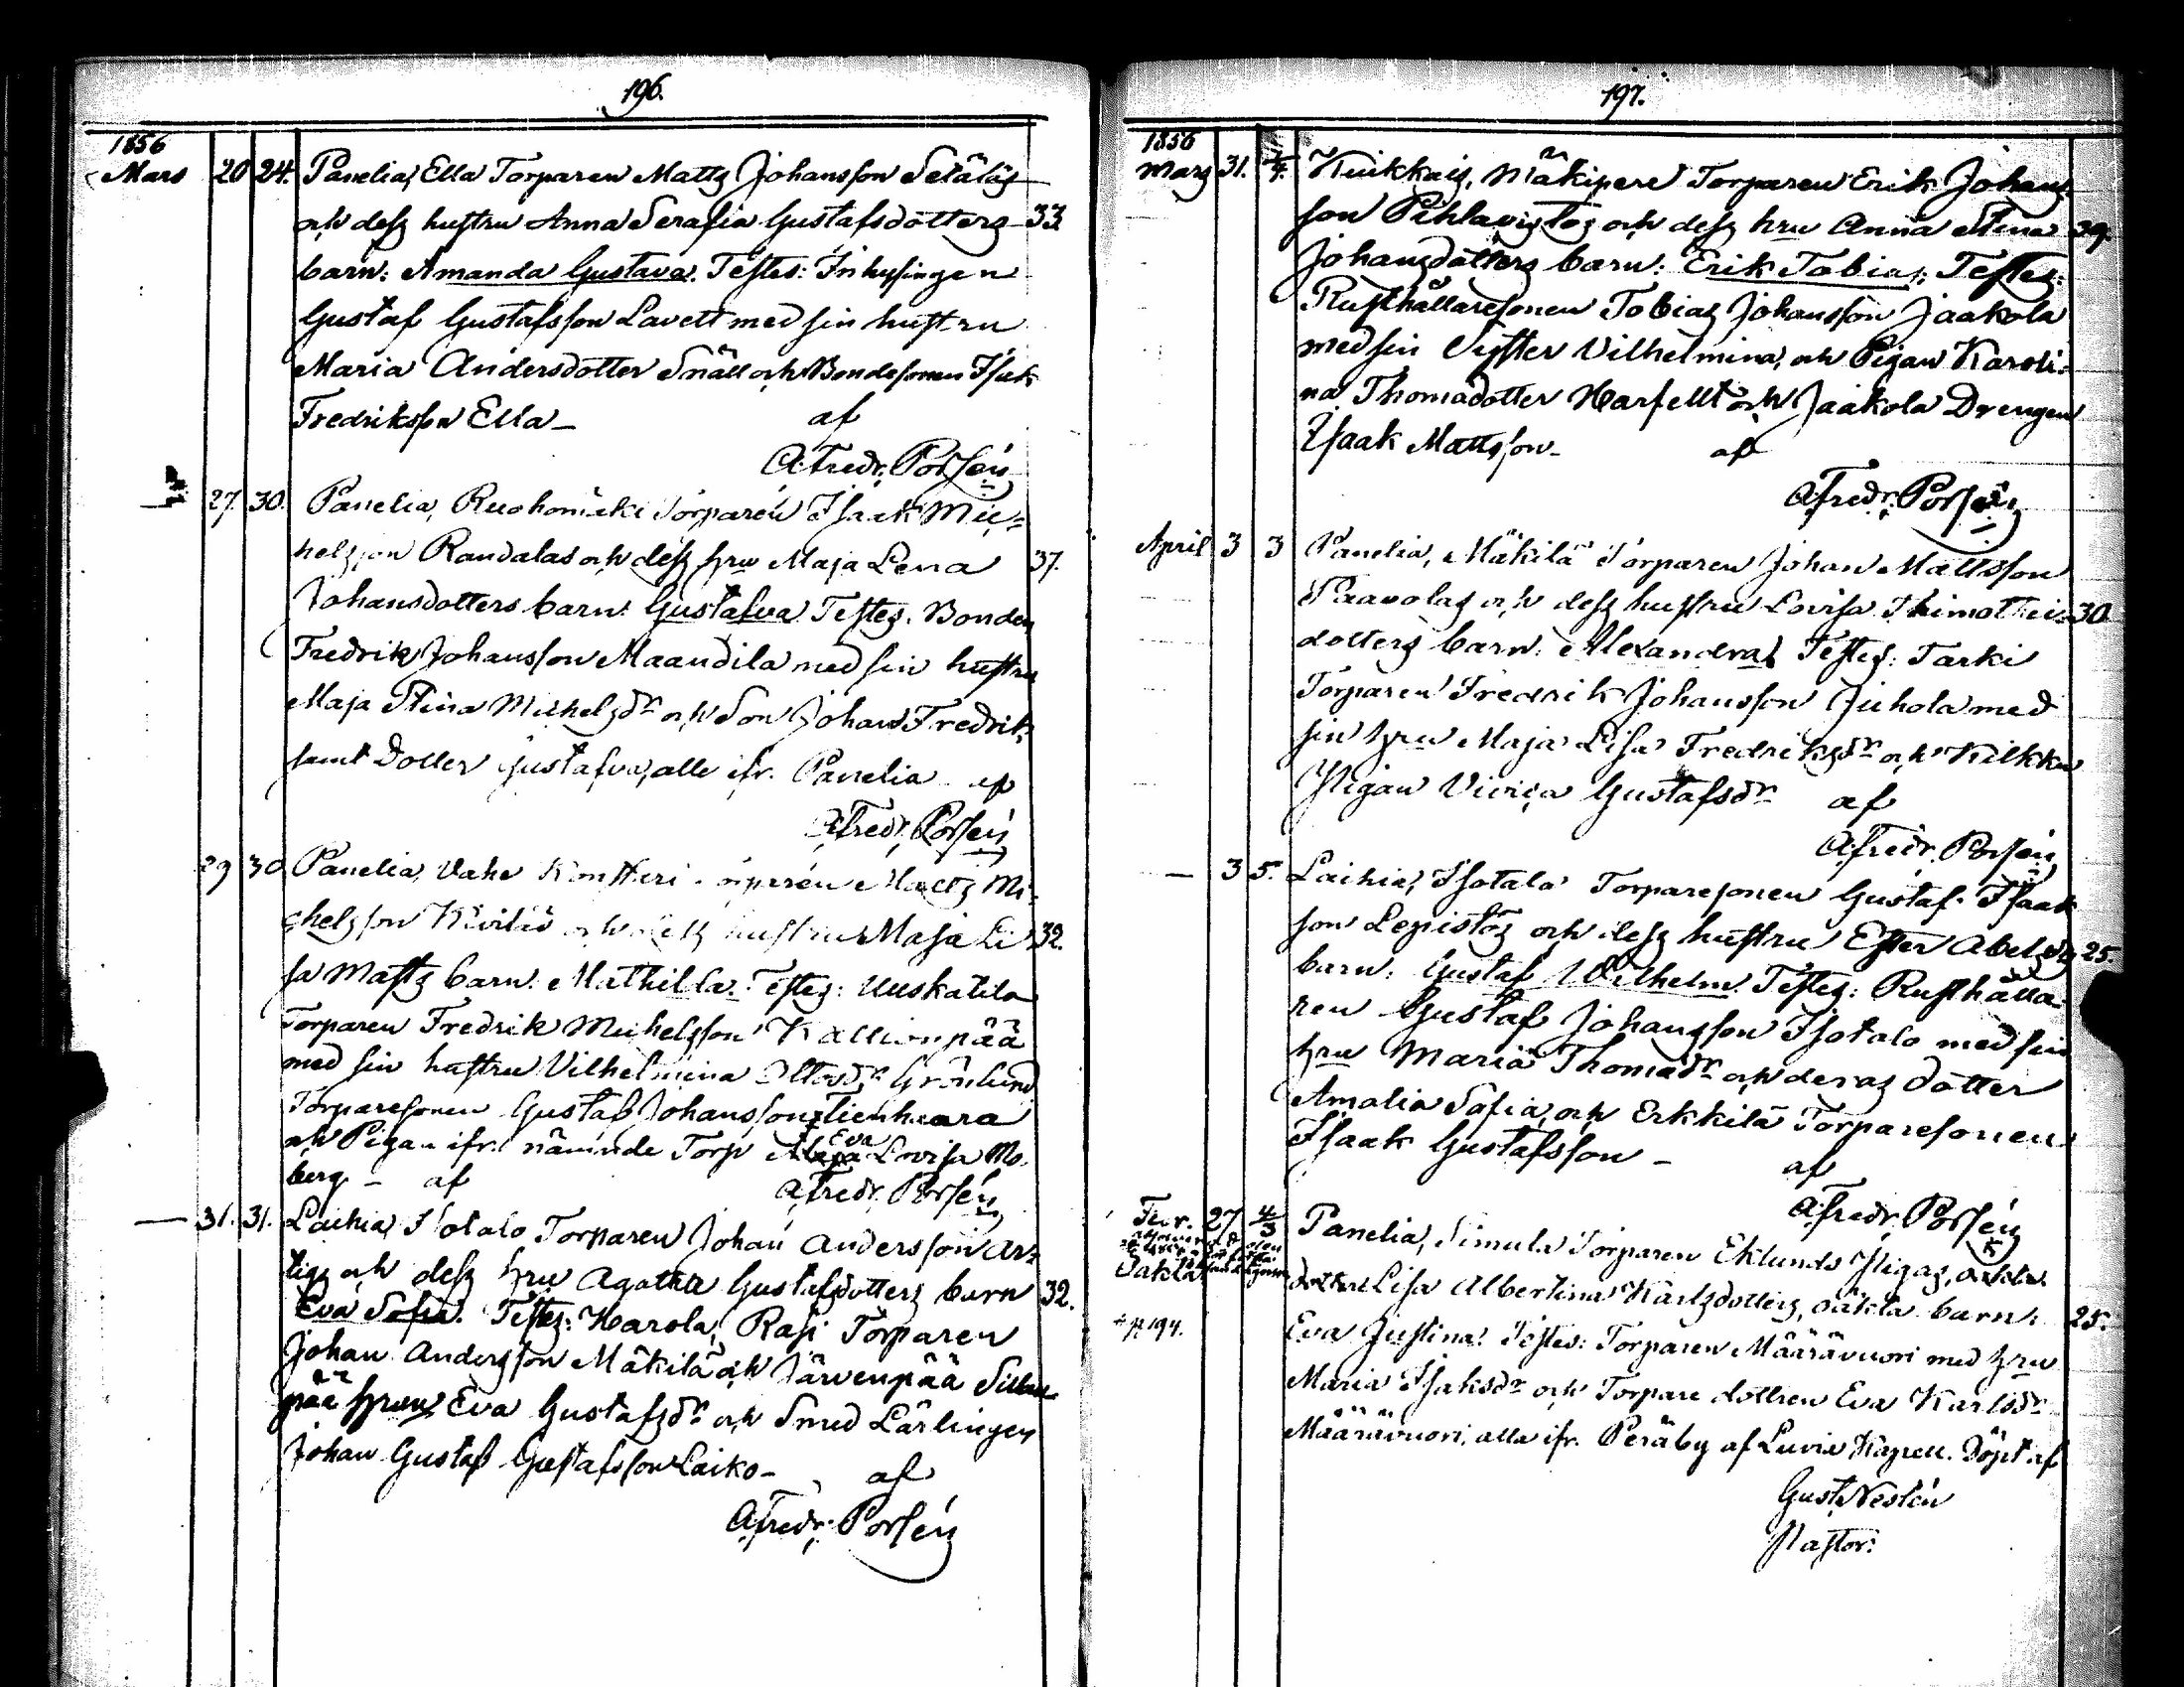 196.
1856
Mars 20 24. Panelia, Ella Torparen Mattz Johansson Setäläs
och dess hustru Anna Serafia Gustafsdotters 33.
barn: Amanda Gustava. Testes: Inhysingen
Gustaf Gustafsson Lavett med sin hustru
Maria Andersdotter Snäll och Bondesonen Isak
Fredriksson Ella – af
A. Fredr. Porsén
— 27. 30. Panelia, Ruohomäki Torparen Isaak Mic=
helsson Randalas och dess hru Maja Lena 37.
Johansdotters barn: Gustafva Testes. Bonden
Fredrik Johansson Maandila med sin hustru
Maja Stina Michelsdr och Son Johan Fredrik,
samt Dotter Gustafva, alle ifr. Panelia af
A. Fredr. Porsén
29 30 Panelia, Vahe Torparen Mattz Mi=
chelsson och dess hustru Maja Li 32.
sa Matts barn: Mathilda. Testes: Uuskatila
Torparen Fredrik Michelsson Kallionpää
med sin hustru Vilhelmina Grönlund
Torparesonen Gustaf Johansson Tienhaara
och Pigan ifr. nämnde Torp Eva Lovisa Mo-
berg – af A. Fredr. Porsén
— 31. 31. Laihia, Isotalo Torparen Johan Andersson Ar=
tigs och dess hru Agatha Gustafsdotters barn 32.
Eva Sofia. Testes: Harola, Rasi Torparen
Johan Andersson Mäkilä och Järvenpää
hrun Eva Gustafsdr och Smed Lärlingen
Johan Gustaf Gustafsson Laiko – af
A. Fredr. Porsén
197.
1856
Mars 31. Kuikkais, Mäkipere Torparen Erik Johans=
son Pihlavistos och dess hru Anna Stina 39.
Johansdotters barn: Erik Tobias: Testes:
Rusthållaresonen Tobias Johansson Jaakola
med sin Syster Vilhelmina, och Pigan Karoli=
na Thomadotter Harfellt och Jaakola Drengen
Isaak Mattsson – af
A. Fredr. Porsén
April 3 3 Panelia, Mäkilä Torparen Johan Mattsson
Paavolas och dess hustru Lovisa Thimothei 30.
dotters barn: Alexandra. Testes: Tarki
Torparen Fredrik Johansson Juhola med
sin hru Maja Lisa Fredriksdr och Kilkku
Pigan Vivica Gustafsdr af
A. Fredr. Porsén
— 3 5. Laihia, Isotalo Torparesonen Gustaf Isaak
son Lepistös och dess hustru Ester Abelsdrs 25.
barn: Gustaf Wilhelm. Testes: Rusthålla=
ren Gustaf Johansson Isotalo med sin
hru Maria Thomadr och deras dotter
Amalia Sofia, och Erkkilä Torparesonen
Isaak Gustafsson – af
A. Fredr. Porsén
Febr. 27 4/3 Panelia, Simula Torparen Eklunds Pigas,
Lisa Albertina Karlsdotters, oäkta barn: 25.
p 194. Eva Justina. Testes: Torparen Määrävuori med hru
Maria Isaksdr och Torpare dottren Eva Karlsdr
Määrävuori, alla ifr. Peräby af Luvia Kapell. Döpt af
Gust. Nestén
Pastor.